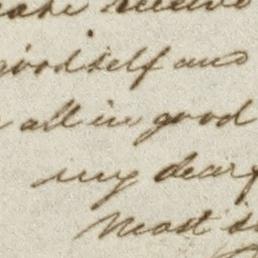 receive
goodself and
all in good
my dear
Most